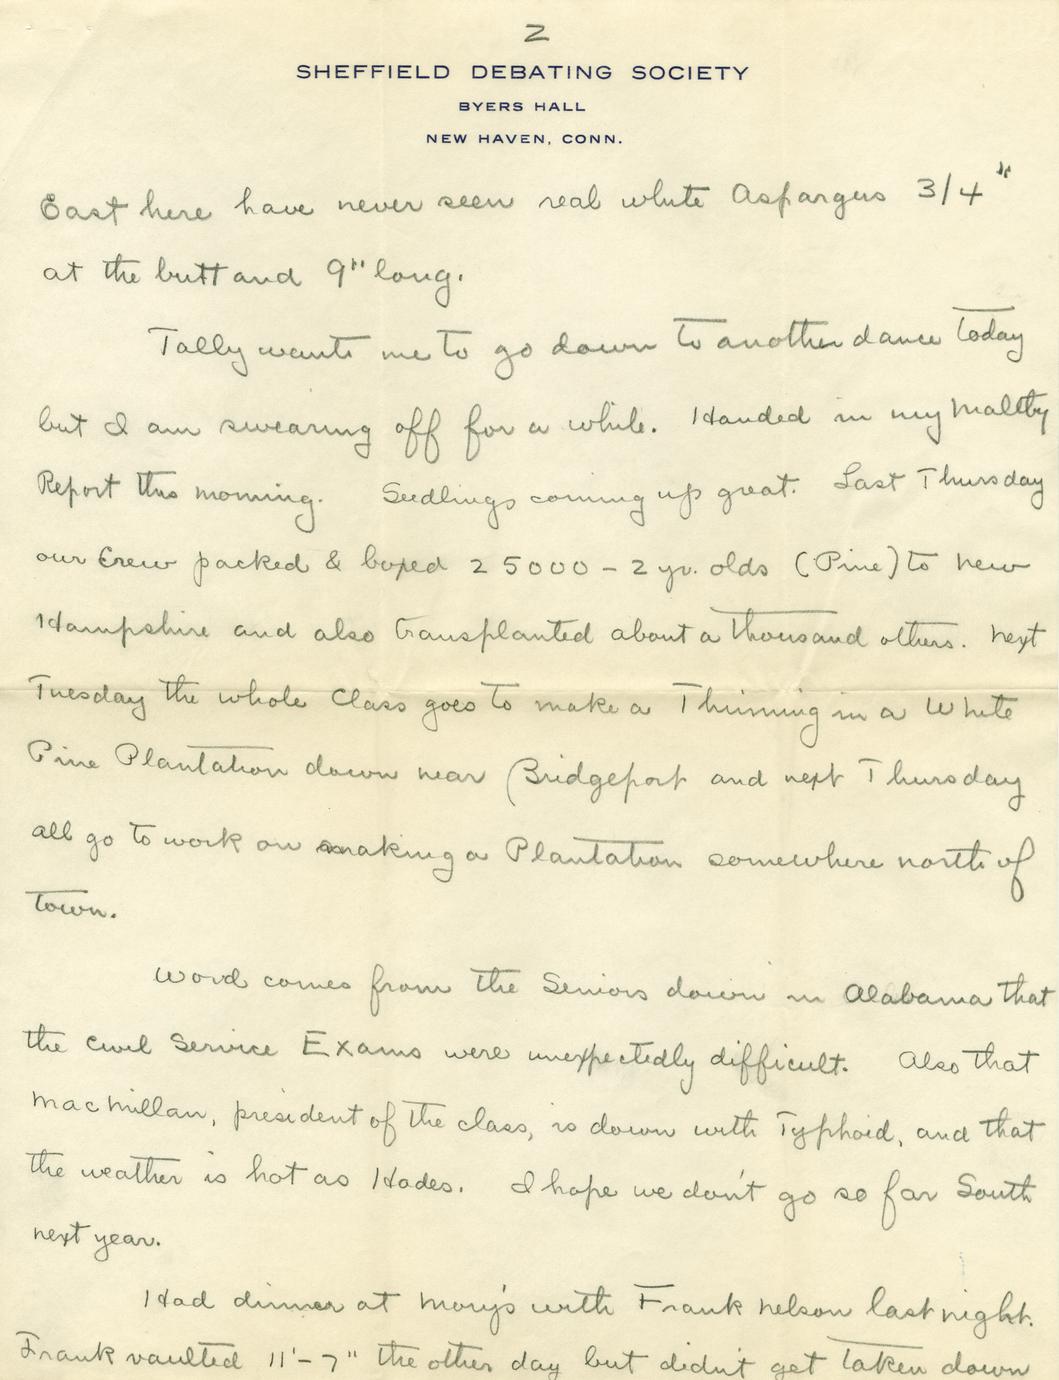 2
SHEFFIELD DEBATING SOCIETY
BYERS HALL
NEW HAVEN, CONN.
East here have never seen real white Aspargus 3/4"
at the butt and 9" long.
Tally wants me to go down to another dance today
but I am swearing off for a while. Handed in my Maltby
Report this morning. Seedlings coming up great. Last Thursday
our Crew packed & boxed 25000 - 2 yr. olds (Pine) to New
Hampshire and also transplanted about a thousand others. Next
Tuesday the whole Class goes to make a Thinning in a White
Pine Plantation down near Bridgeport and next Thursday
all go to work on making a Plantation somewhere north of
town.
Word comes from the Seniors down in Alabama that
the Civil Service Exams were unexpectedly difficult. Also that
MacMillan, president of the class, is down with Typhoid, and that
the weather is hot as Hades. I hope we don't go so far South
next year.
Had dinner at Mory's with Frank Nelson last night.
Frank vaulted 11'-7" the other day but didn't get taken down